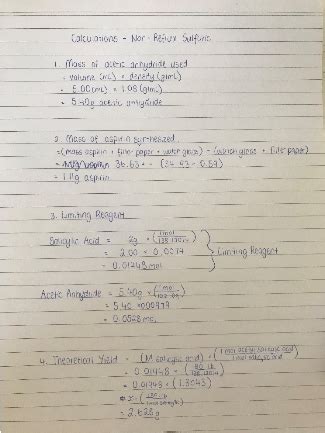 Calculations - Non-Reflux Sulfuric
1. Mass of acetic anhydride used
= volume (mL) × density (g/mL)
= 5.00 (mL) × 1.08 (g/mL)
= 5.40g acetic anhydride
2. Mass of aspirin synthesized
= (mass aspirin + filter paper + watch glass) - (watch glass + filter paper)
= 36.63 - (34.93 - 0.59)
= 1.11g aspirin
3. Limiting Reagent
Salicylic Acid = 2g × (1mol /
= 2.00 ×
= 0.01448 mol
} Limiting Reagent
Acetic Anhydride = 5.40g × (1mol /
= 5.40 × 0.00979
= 0.0528 mol
4. Theoretical Yield = (M salicylic acid) × (1 mol acetyl salicylic acid / 1 mol salicylic acid)
= 0.01448 ×
= 0.01448 × (1.3043)
= 2.628g